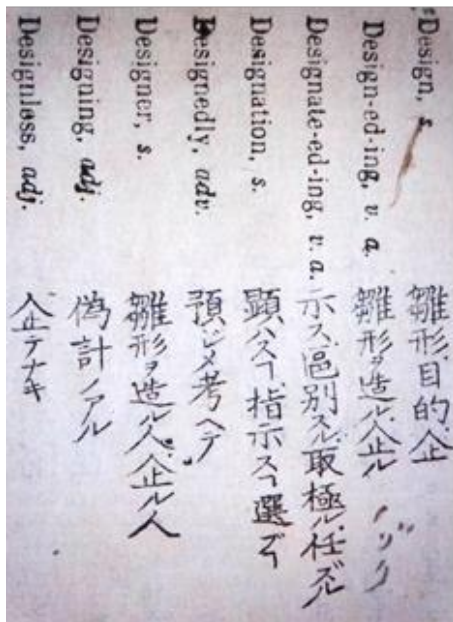 Design, s. 雛形.目的.企
Design-ed-ing, v. a. 雛形ヲ造ル.企ル
Designate-ed-ing, v. a. 示ス.區別スル.取極ル.任ズル
Designation, s. 顕ハスヿ.指示スヿ.選ミ
Designedly, adv. 預ジメ考ヘテ
Designer, s. 雛形ヲ造ル人.企ル人
Designing, adj. 偽計ノアル
Designless, adj. 企テナキ